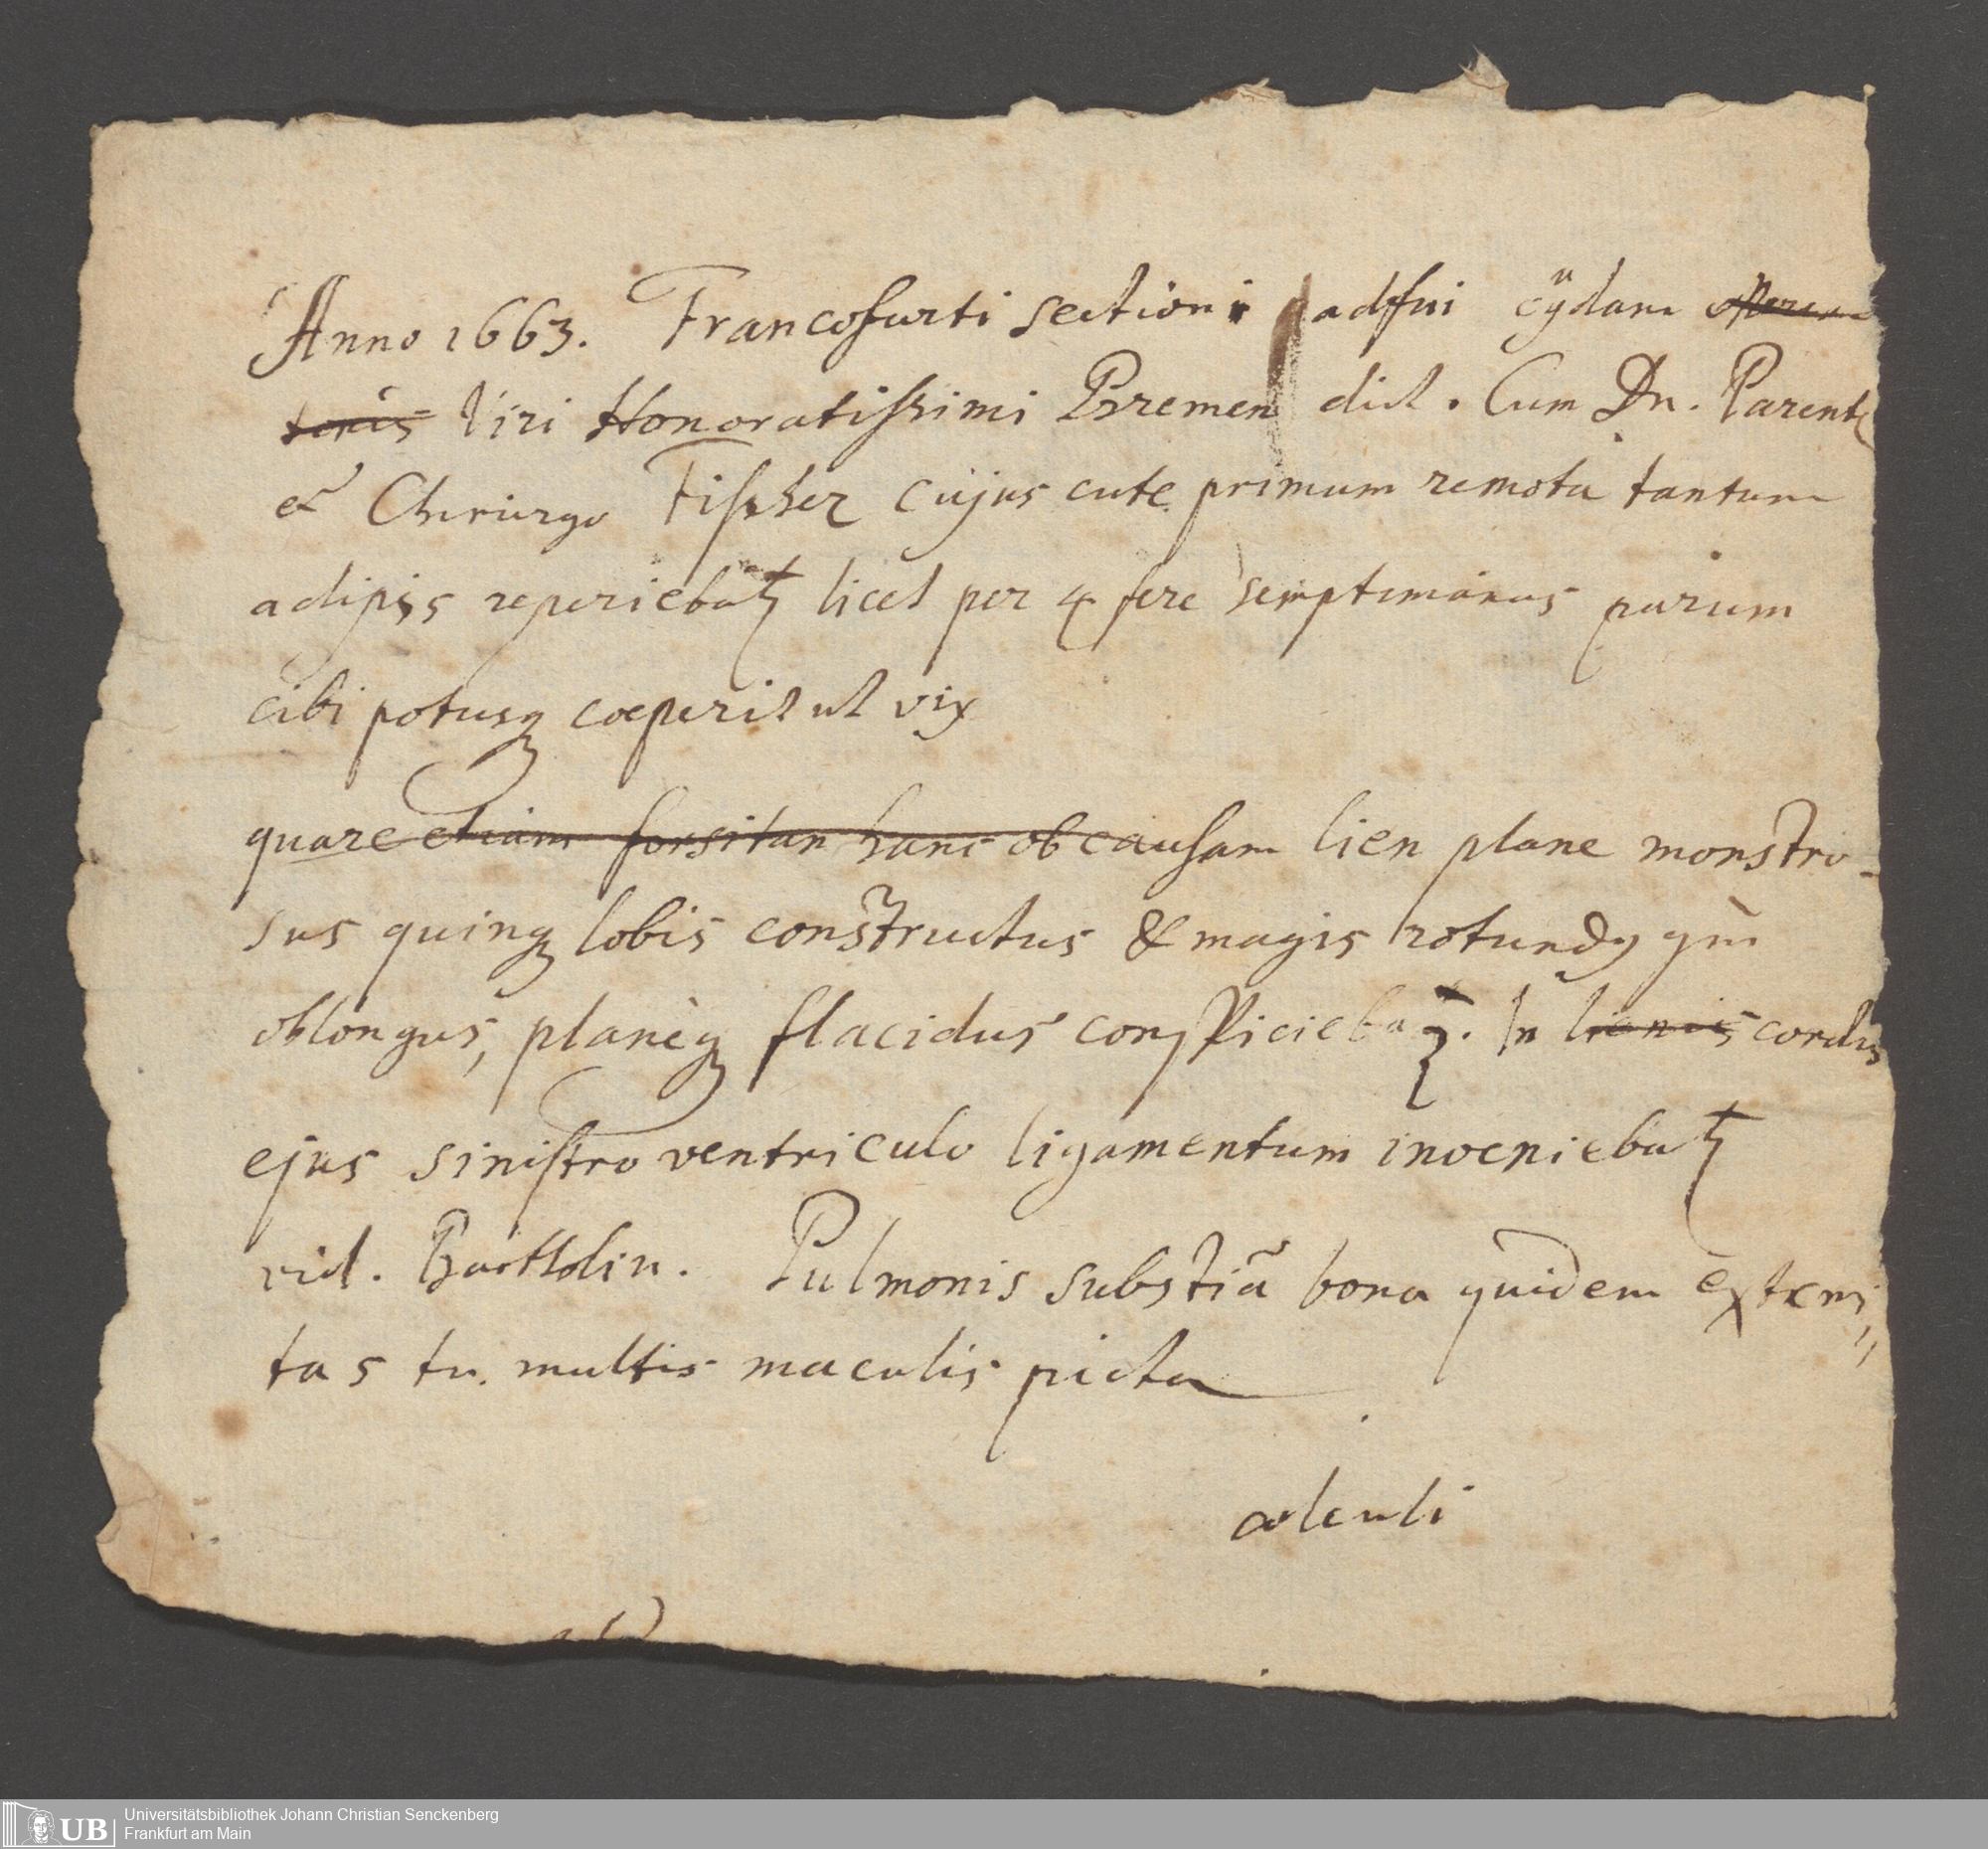 Anno 1663. Francofurti sectioni adfui cÿdam
Viri Honoratissimi Bremen dict. Cum Dn. Parente
et Chirurgo Fischer cujus cute primum remota tantum
adipis reperiebatr licet per 4 fere semptimanas parum
cibi potusq coeperit ut vix
quare etiam forsitan hanc ob causam lien plane monstro-
sus quinq lobis constructus & magis rotundq qm
oblongus, planèq flacidus conspiciebatr. In lienis cordis
ejus sinistro ventriculo ligamentum inveniebatr
vid. Bartholin. Pulmonis substiã bona quidem extemi
tas tn. multis maculis picta
calculi
UB
Universitätsbibliothek Johann Christian Senckenberg
Frankfurt am Main